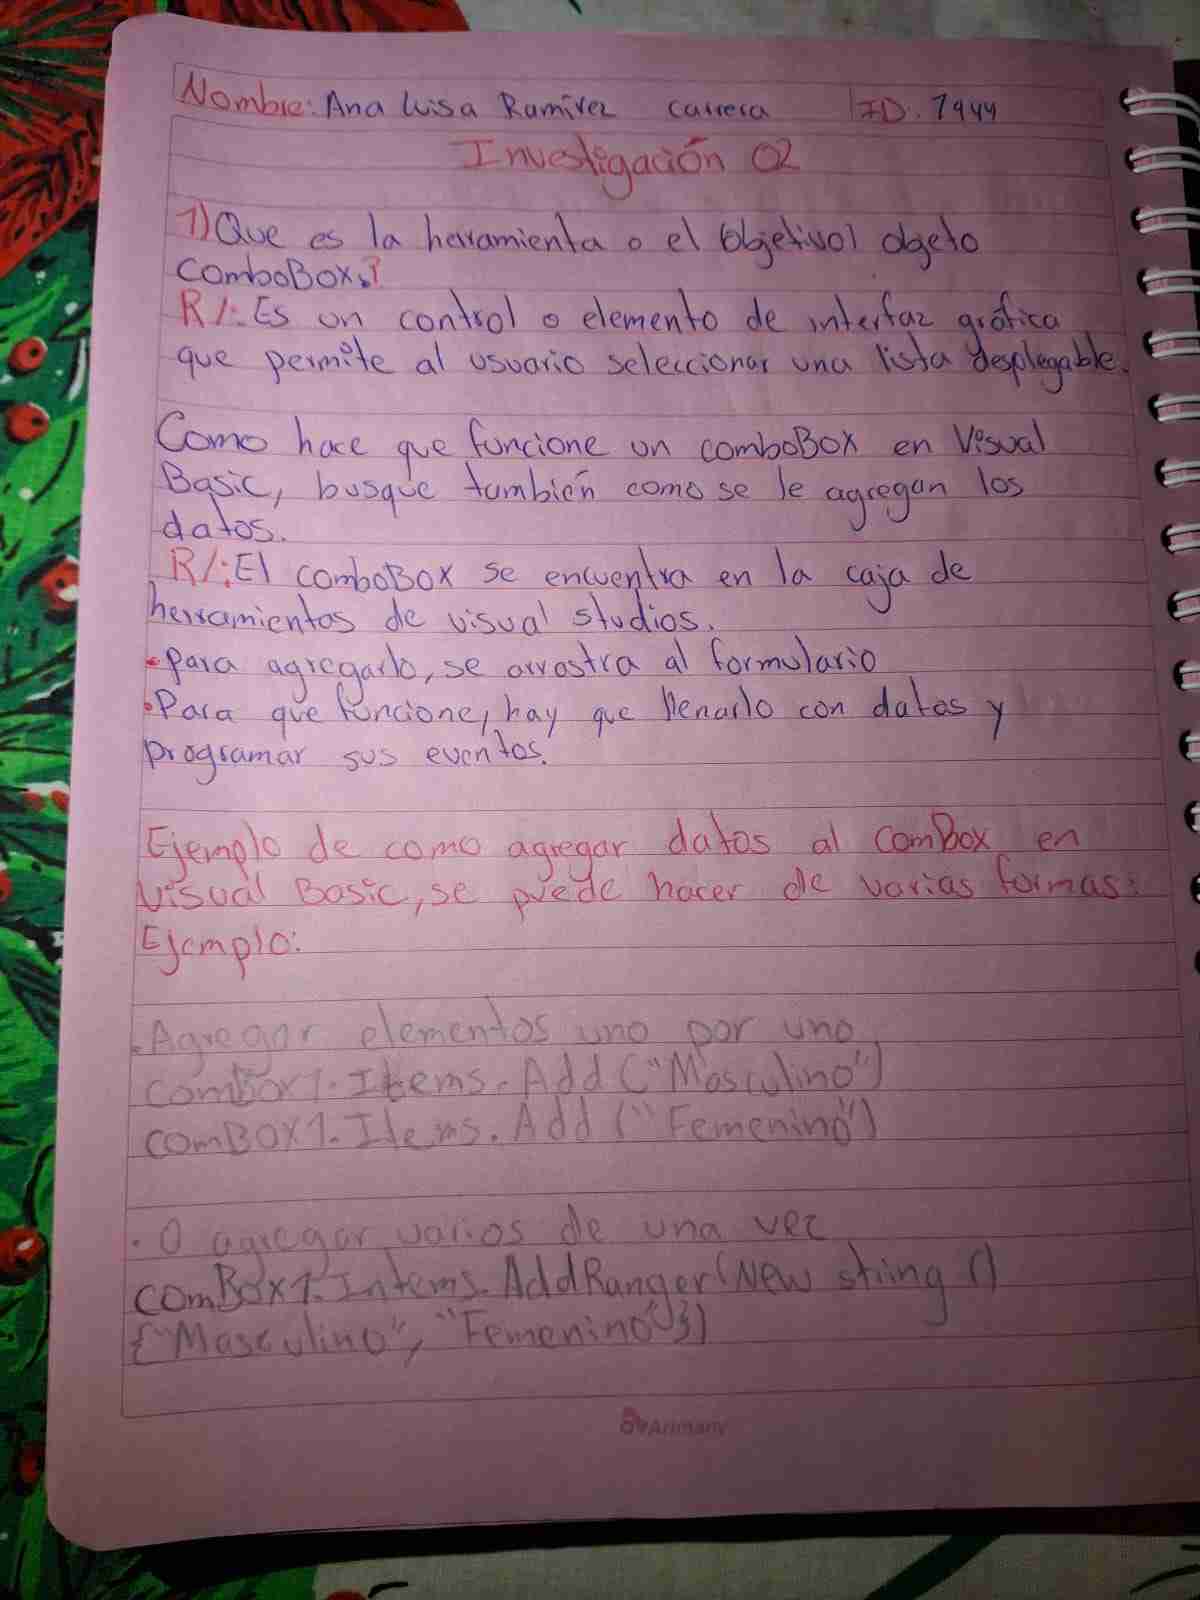 Nombre: Ana Luisa Ramírez Carrera ID. 7944
Investigación 02
1) Que es la herramienta o el (objetivo) objeto
comboBox.?
R/: Es un control o elemento de interfaz gráfica
que permite al usuario seleccionar una lista desplegable.
Como hace que funcione un comboBox en Visual
Basic, busque también como se le agregan los
datos.
R/: El comboBox se encuentra en la caja de
herramientos de visual studios.
• Para agregarlo, se arrastra al formulario
• Para que funcione, hay que llenarlo con datos y
programar sus eventos.
Ejemplo de como agregar datos al comBox en
Visual Basic, se puede hacer de varias formas:
Ejemplo:
• Agregar elementos uno por uno
comBox1. Items. Add ("Masculino")
comBOX1. Items. Add ("Femenino")
• O agregar varios de una vez
comBox1. Intems. AddRanger (New string ()
{"Masculino", "Femenino"})
Arimany